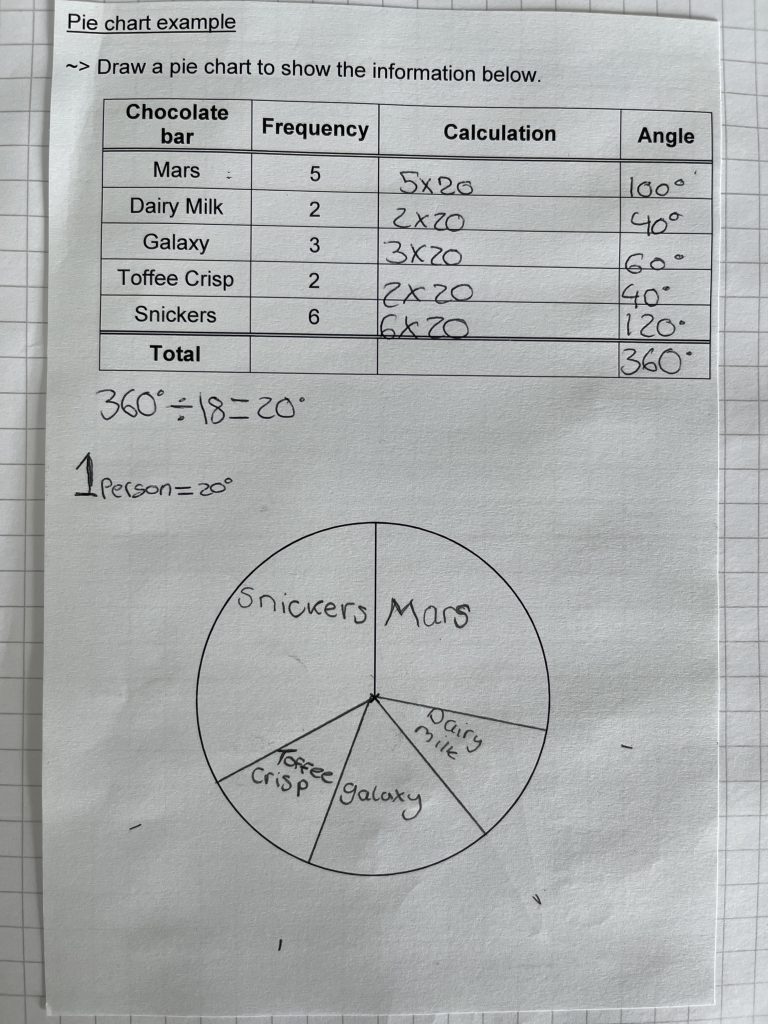 Pie chart example
~> Draw a pie chart to show the information below.
Chocolate bar Frequency Calculation Angle
Mars 5 5x20 100°
Dairy Milk 2 2x20 40°
Galaxy 3 3x20 60°
Toffee Crisp 2 2x20 40°
Snickers 6 6x20 120°
Total 360°
360° ÷ 18 = 20°
1 Person = 20°
Snickers Mars
Dairy
milk
Toffee
Crisp galaxy